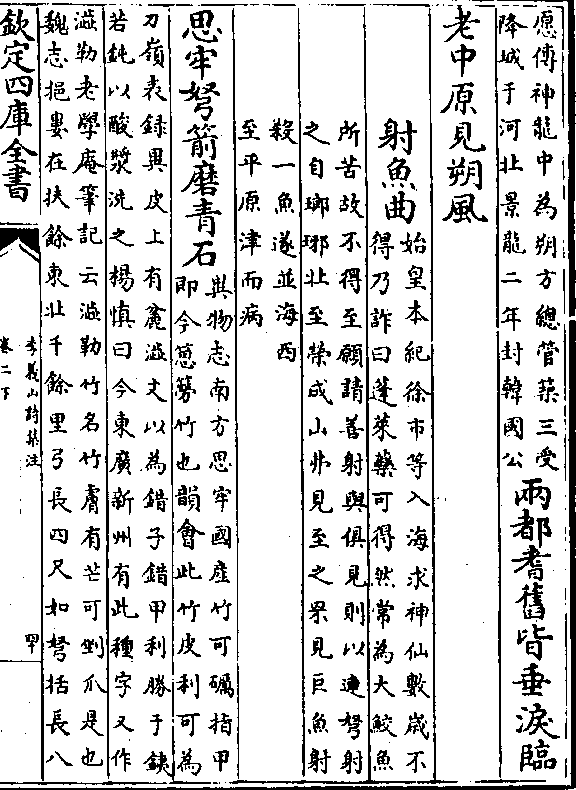 愿傳神龍中為朔方總管築三受
降城于河北景龍二年封韓國公
兩都耆舊皆垂淚臨
老中原見朔風
射魚曲
始皇本紀徐市等入海求神仙數歲不
得乃詐曰蓬萊藥可得然常為大鮫魚
所苦故不得至願請善射與俱見則以連弩射
之自瑯琊北至榮成山弗見至之罘見巨魚射
殺一魚遂並海西
至平原津而病
思牢弩箭磨青石
異物志南方思牢國産竹可礪指甲
即今䓗簩竹也韻會此竹皮利可為
刀嶺表録異皮上有麄澁文以為錯子錯甲利勝于鐵
若鈍以酸漿洗之楊慎曰今東廣新州有此種字又作
澁勒老學庵筆記云澁勒竹名竹膚有芒可剉爪是也
魏志挹婁在扶餘東北千餘里弓長四尺如弩括長八
欽定四庫全書
李義山詩集注
卷二下